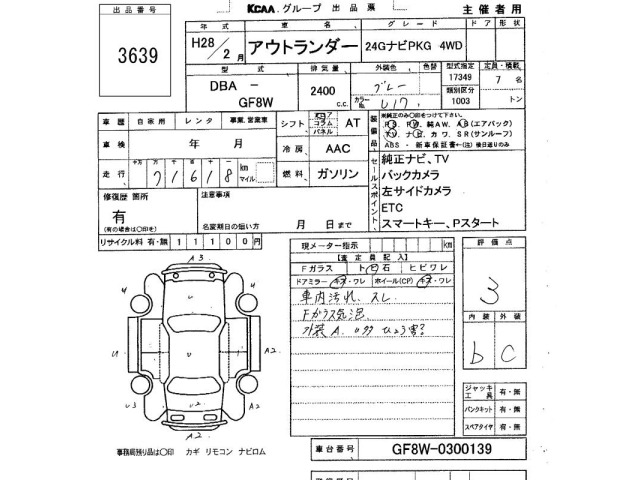 KCAA グループ 出品票 主催者用
出品番号
3639
年式 車名 グレード ドア 形状
H28/2月 アウトランダー 24GナビPKG 4WD
型式 排気量 外装色 色替 型式指定 定員・積載
DBA - GF8W 2400 c.c. グレー 17349 7名
カラーNo. U17 類別区分 1003 トン
車歴 自家用 レンタ 事業、営業車
シフト フロア コラム パネル AT
車検 年 月
冷房 AAC
走行 十万 万 千 71618 km マイル
燃料 ガソリン
装備品
※純正のみ〇印をつけて下さい。
P S、P W、純AW、A B(エアバック)
T V、ナ ビ、カ ワ、S R(サンルーフ)
ABS ・ 新車保証書←(注)後日送りのみ
セールスポイント
純正ナビ、TV
バックカメラ
左サイドカメラ
ETC
スマートキー、Pスタート
修復歴 箇所
有
(有の場合は〇印を)
注意事項
名変期日の短い方 月 日まで
リサイクル料 有・無 11100円
現メーター指示 km
【査定員記入】
Fガラス トビ石 ヒビワレ
ドアミラー キズ・ワレ ホイール(CP) キズ・ワレ
車内汚れ、スレ
Fガラス気泡
外装A、U多 ひょう害?
評価点
3
内装 外装
b C
ジャッキ 工具 有・無
パンクキット 有・無
スペアタイヤ 有・無
A3
U
U
A2
U3
U
A2
A2
事務局預り品は〇印 カギ リモコン ナビロム
車台番号 GF8W-0300139